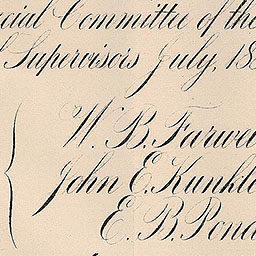 cial Committee of the
Supervisors July, 188
W. B. Farwel
John E. Kunkle
E. B. Pond